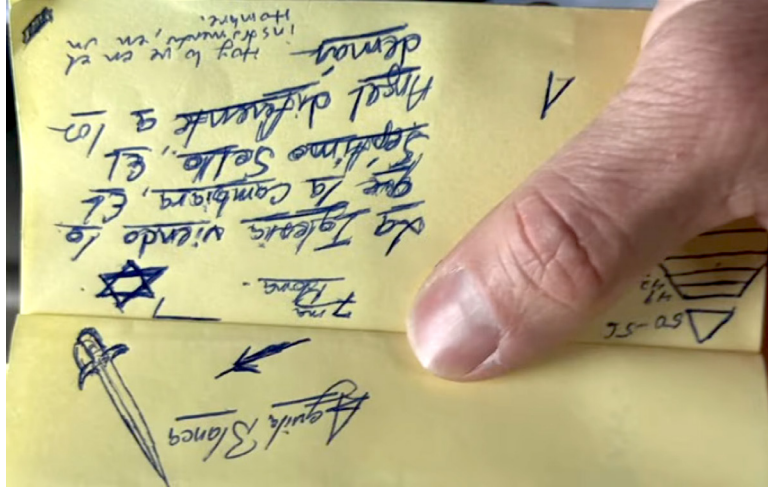 Aguila Blanca
50-56
7ma
La Iglesia viendo lo
que la cambiara, EL
Séptimo Sello, EL
Angel diferente a los
demás
Hoy lo ve en el
instrumento, en un
Hombre.